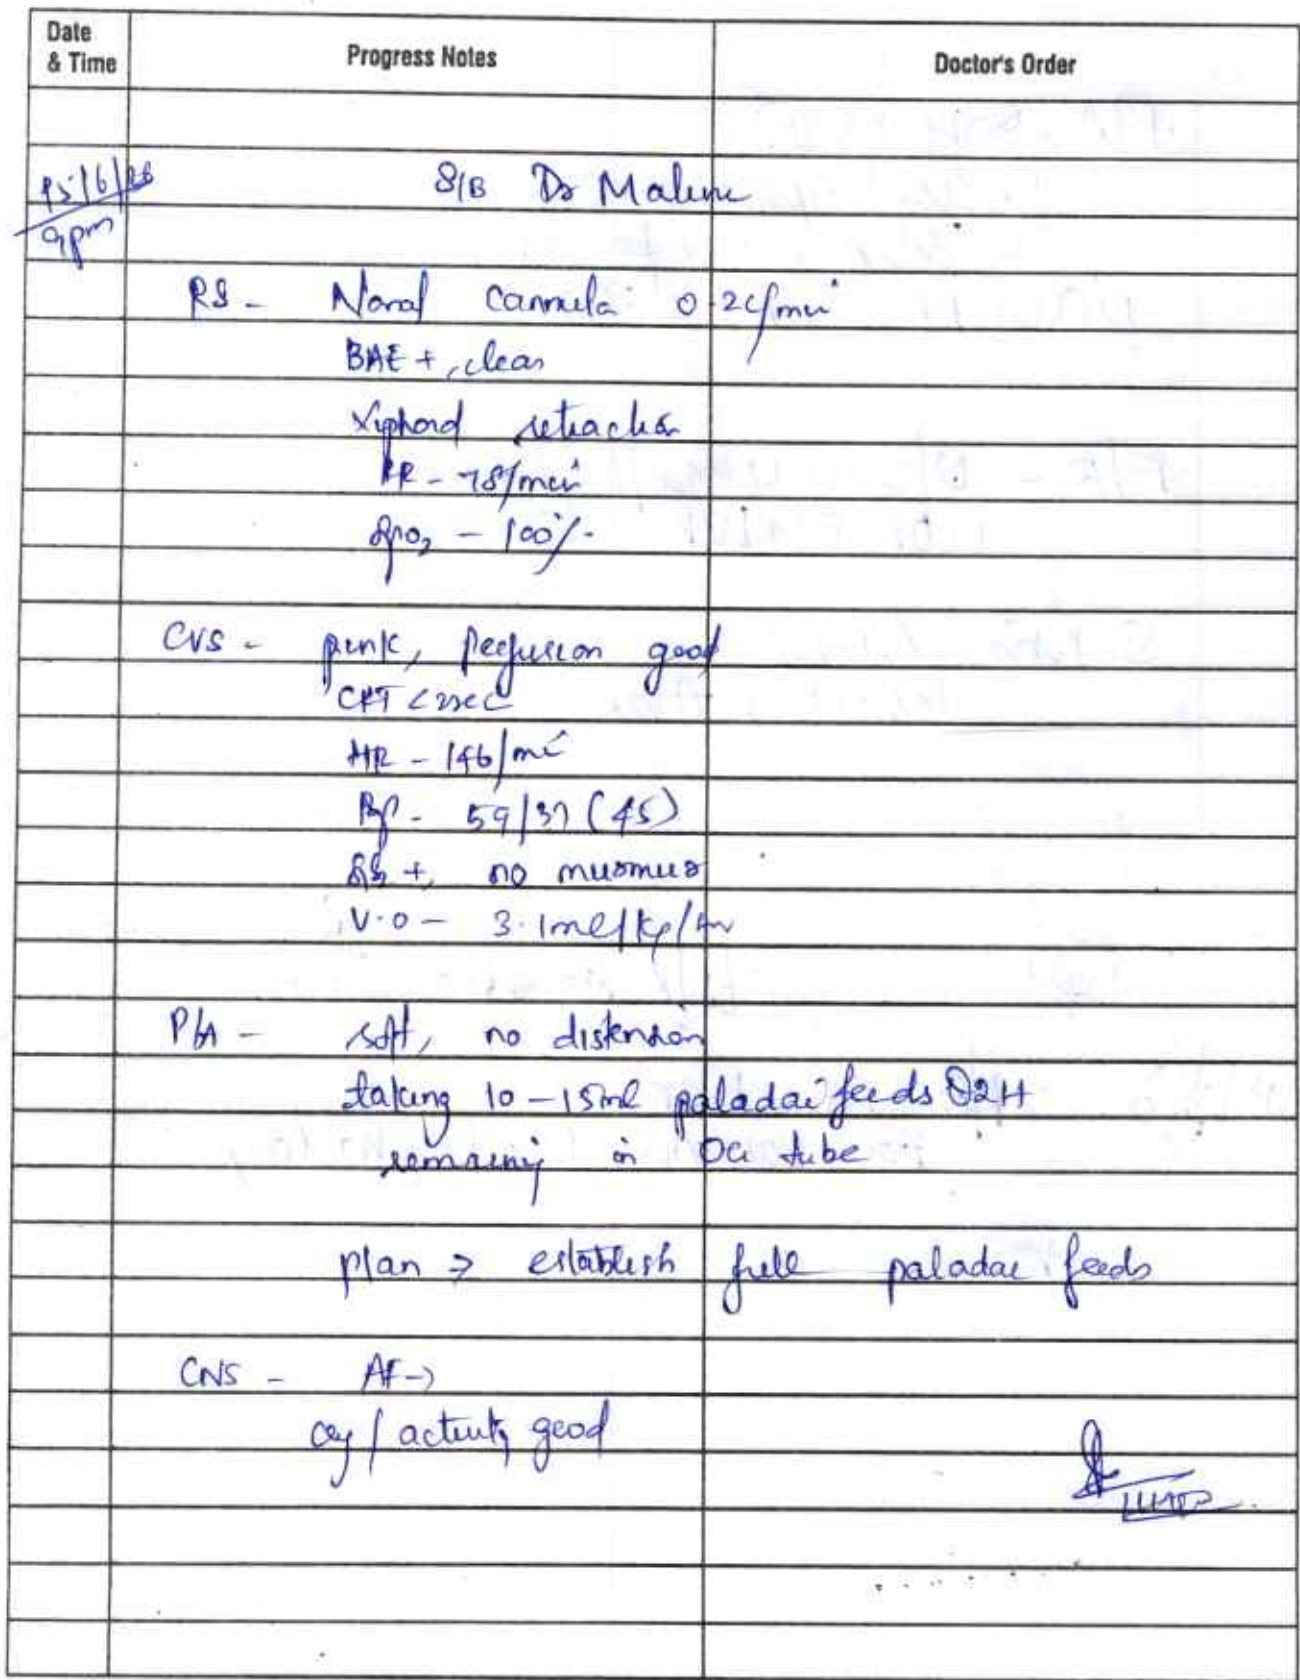 Date & Time
Progress Notes
Doctor's Order
15/6/26
9pm
S/B Dr Maline
RS - Nasal cannula 0.2L/min
BAE +, clear
Xiphoid retraction
RR - 78/min
SpO2 - 100%
CVS - pink, perfusion good
CRT <2sec
HR - 146/min
BP - 59/37 (45)
S1S2 +, no murmur
U.O - 3.1ml/kg/hr
P/A - soft, no distension
taking 10-15ml paladai feeds Q2H
remaining in OG tube
plan → establish full paladai feeds
CNS - AF →
cry / activity good